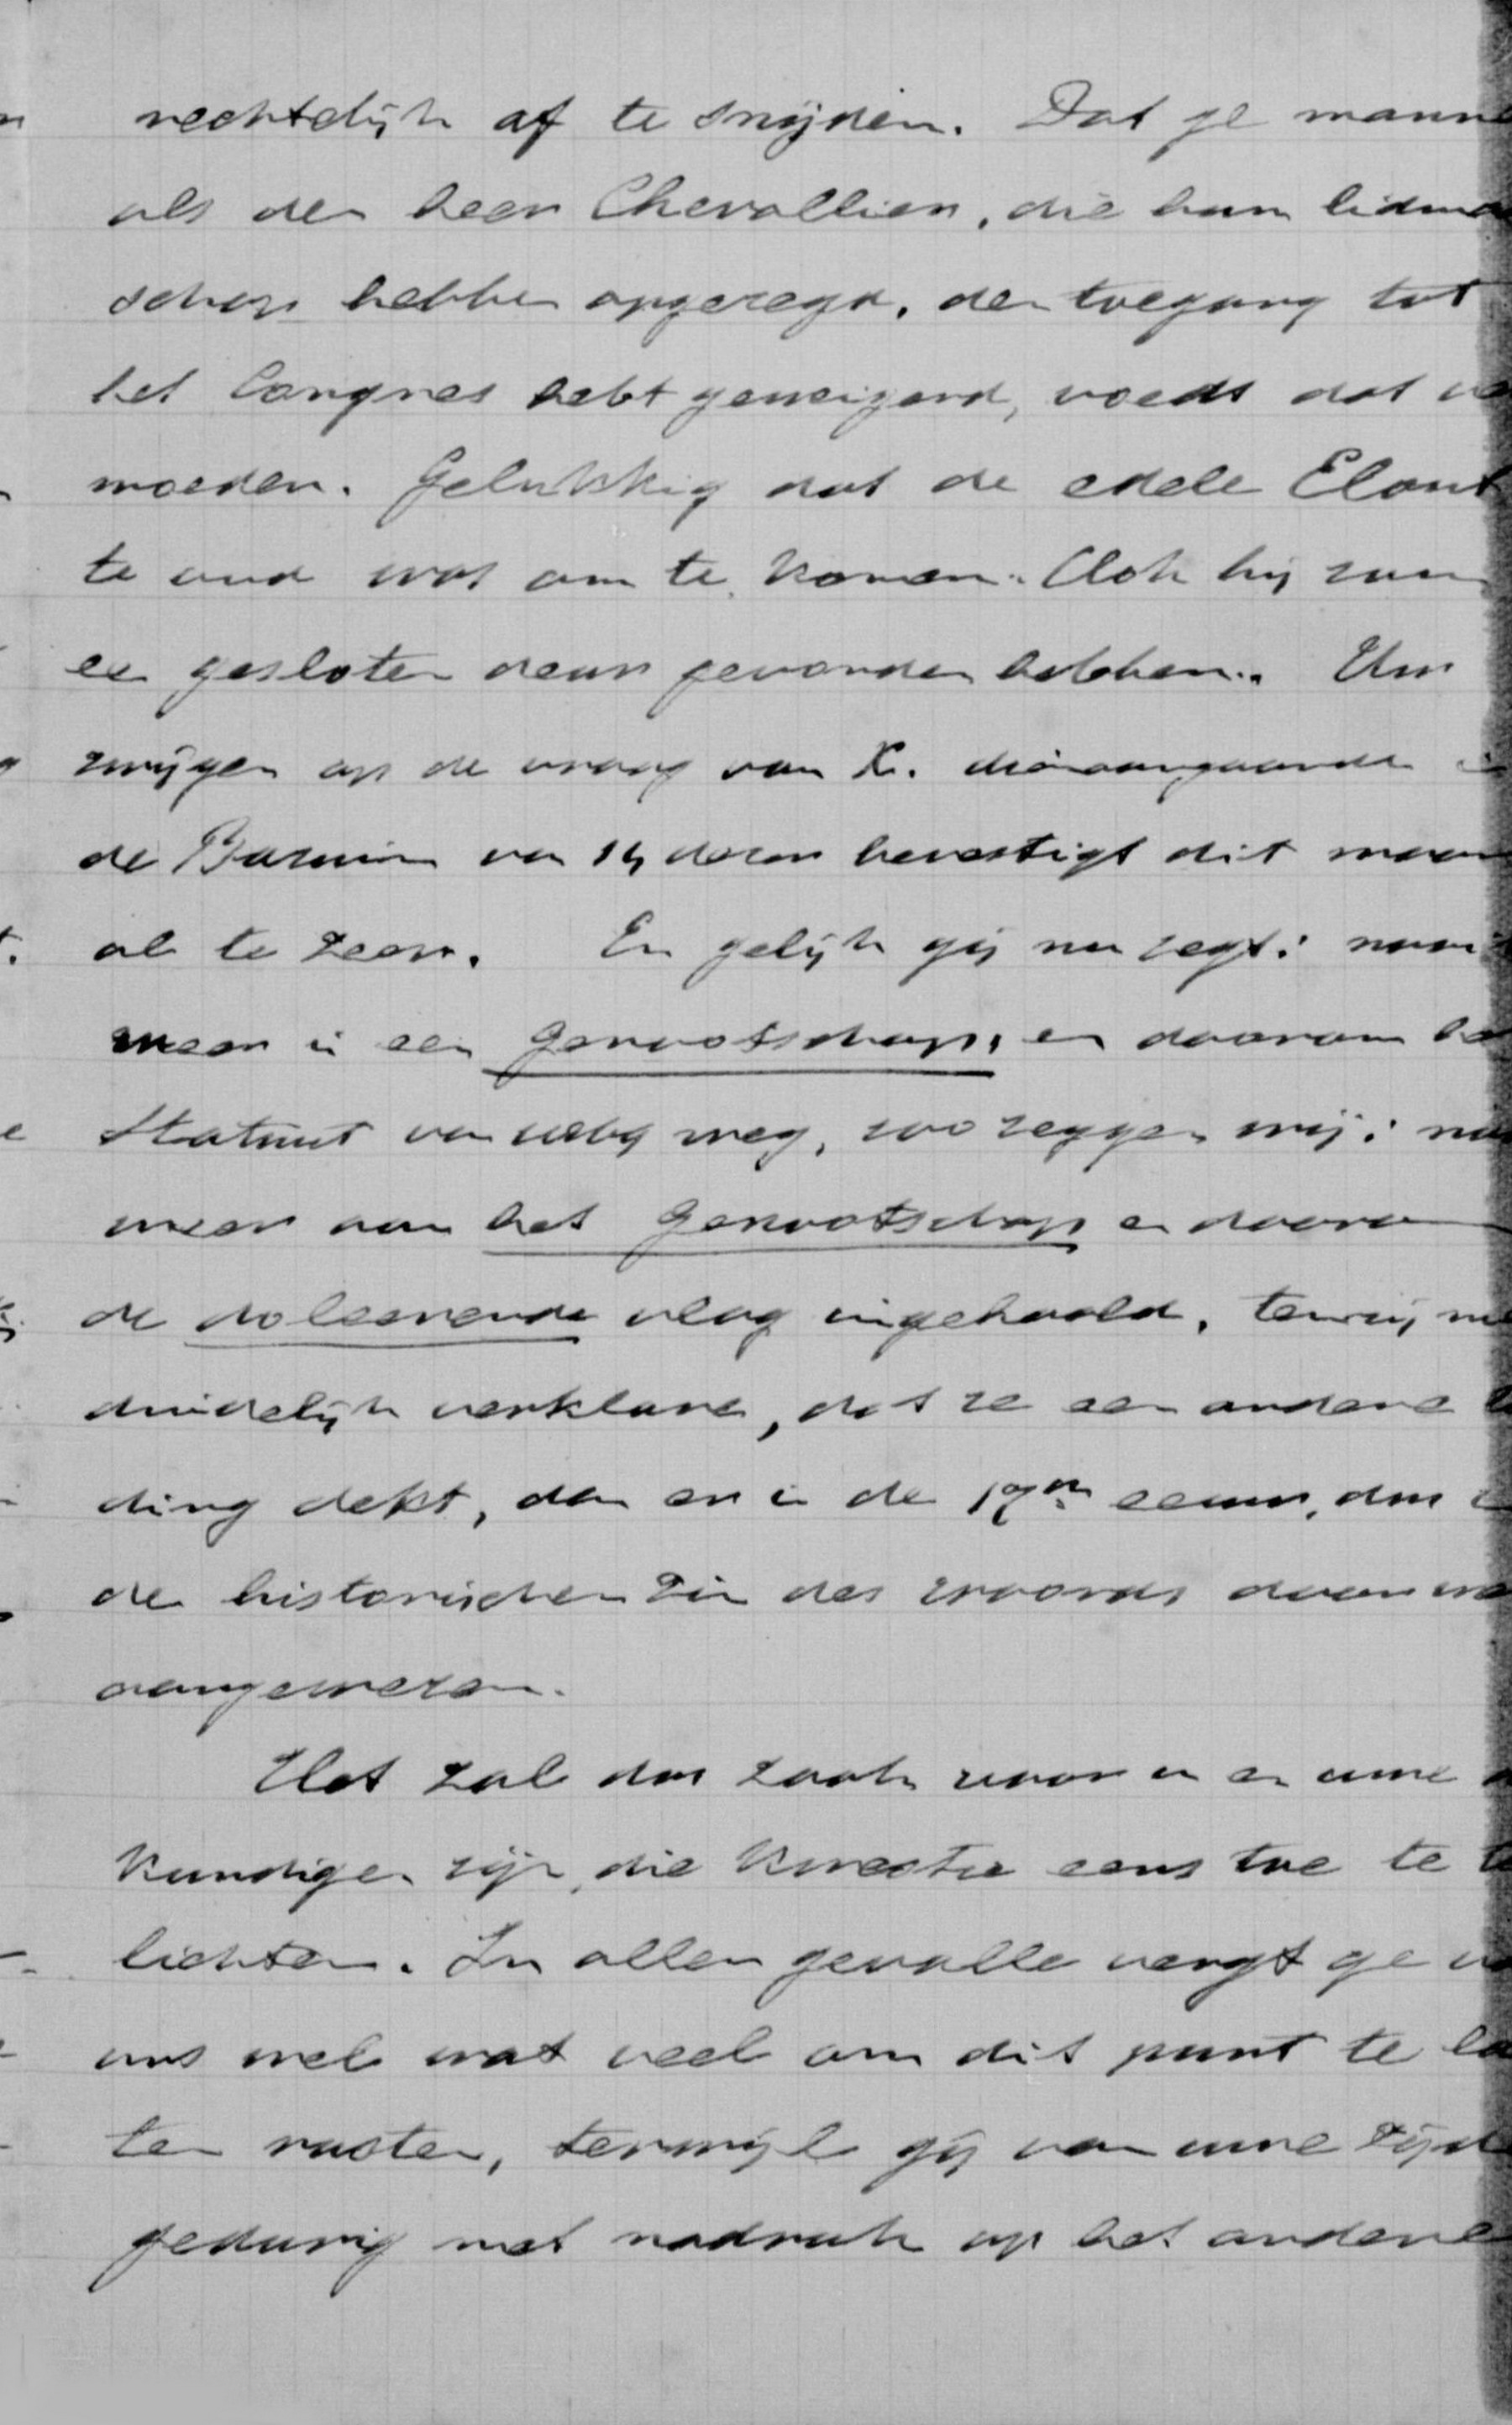 rechtelijk af te snijden. Dat ge manne
als den heer Chevallier, die hun lidma
schap hebben opgezegd, den toegang tot
het Congres hebt geweigerd, voedt dat ve
moeden. Gelukkig dat de edele Elout
te oud was om te komen. Ook hij zou
een gesloten deur gevonden hebben. Uw
zwijgen op de vraag van K. dienaangaande i
de Bazuin van 14 dezer bevestigt dit maar
al te zeer. En gelijk gij nu zegt: nooit
meer in een genootschap, en daarom het
Statuut van 1869 weg, zoo zeggen wij: no
meer aan het genootschap en daarom
de doleerende vlag ingehaald, tenzij me
duidelijk verklare, dat ze een andere l
ding dekt, dan en in de 17en eeuw, dus i
den historischen zin des woords door we
aangewezen.
Het zal dus zaak voor u en uwe
kundigen zijn, die kwestie eens toe te
lichten. In allen gevalle vergt ge v
ons wel wat veel om dit punt te la
ten rusten, terwijl gij van uwe zijde
gedurig met nadruk op het andere